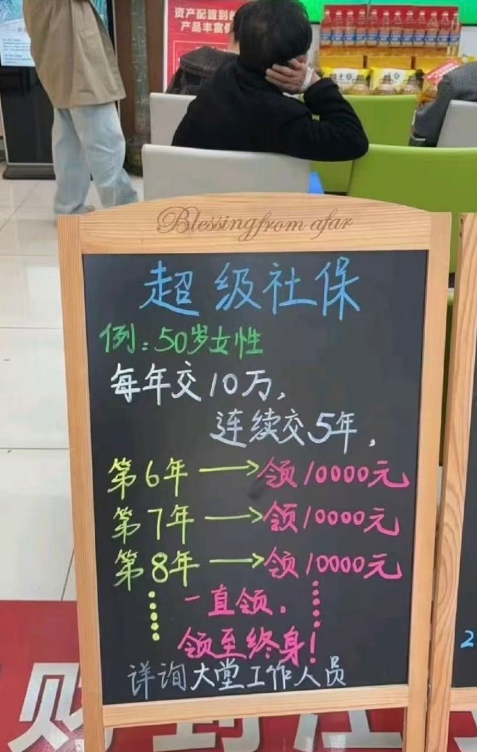 资产配置到
产品丰富
Blessing from afar
超级社保
例：50岁女性
每年交10万，
连续交5年，
第6年→领10000元
第7年→领10000元
第8年→领10000元
一直领．
领至终身！
详询大堂工作人员
2